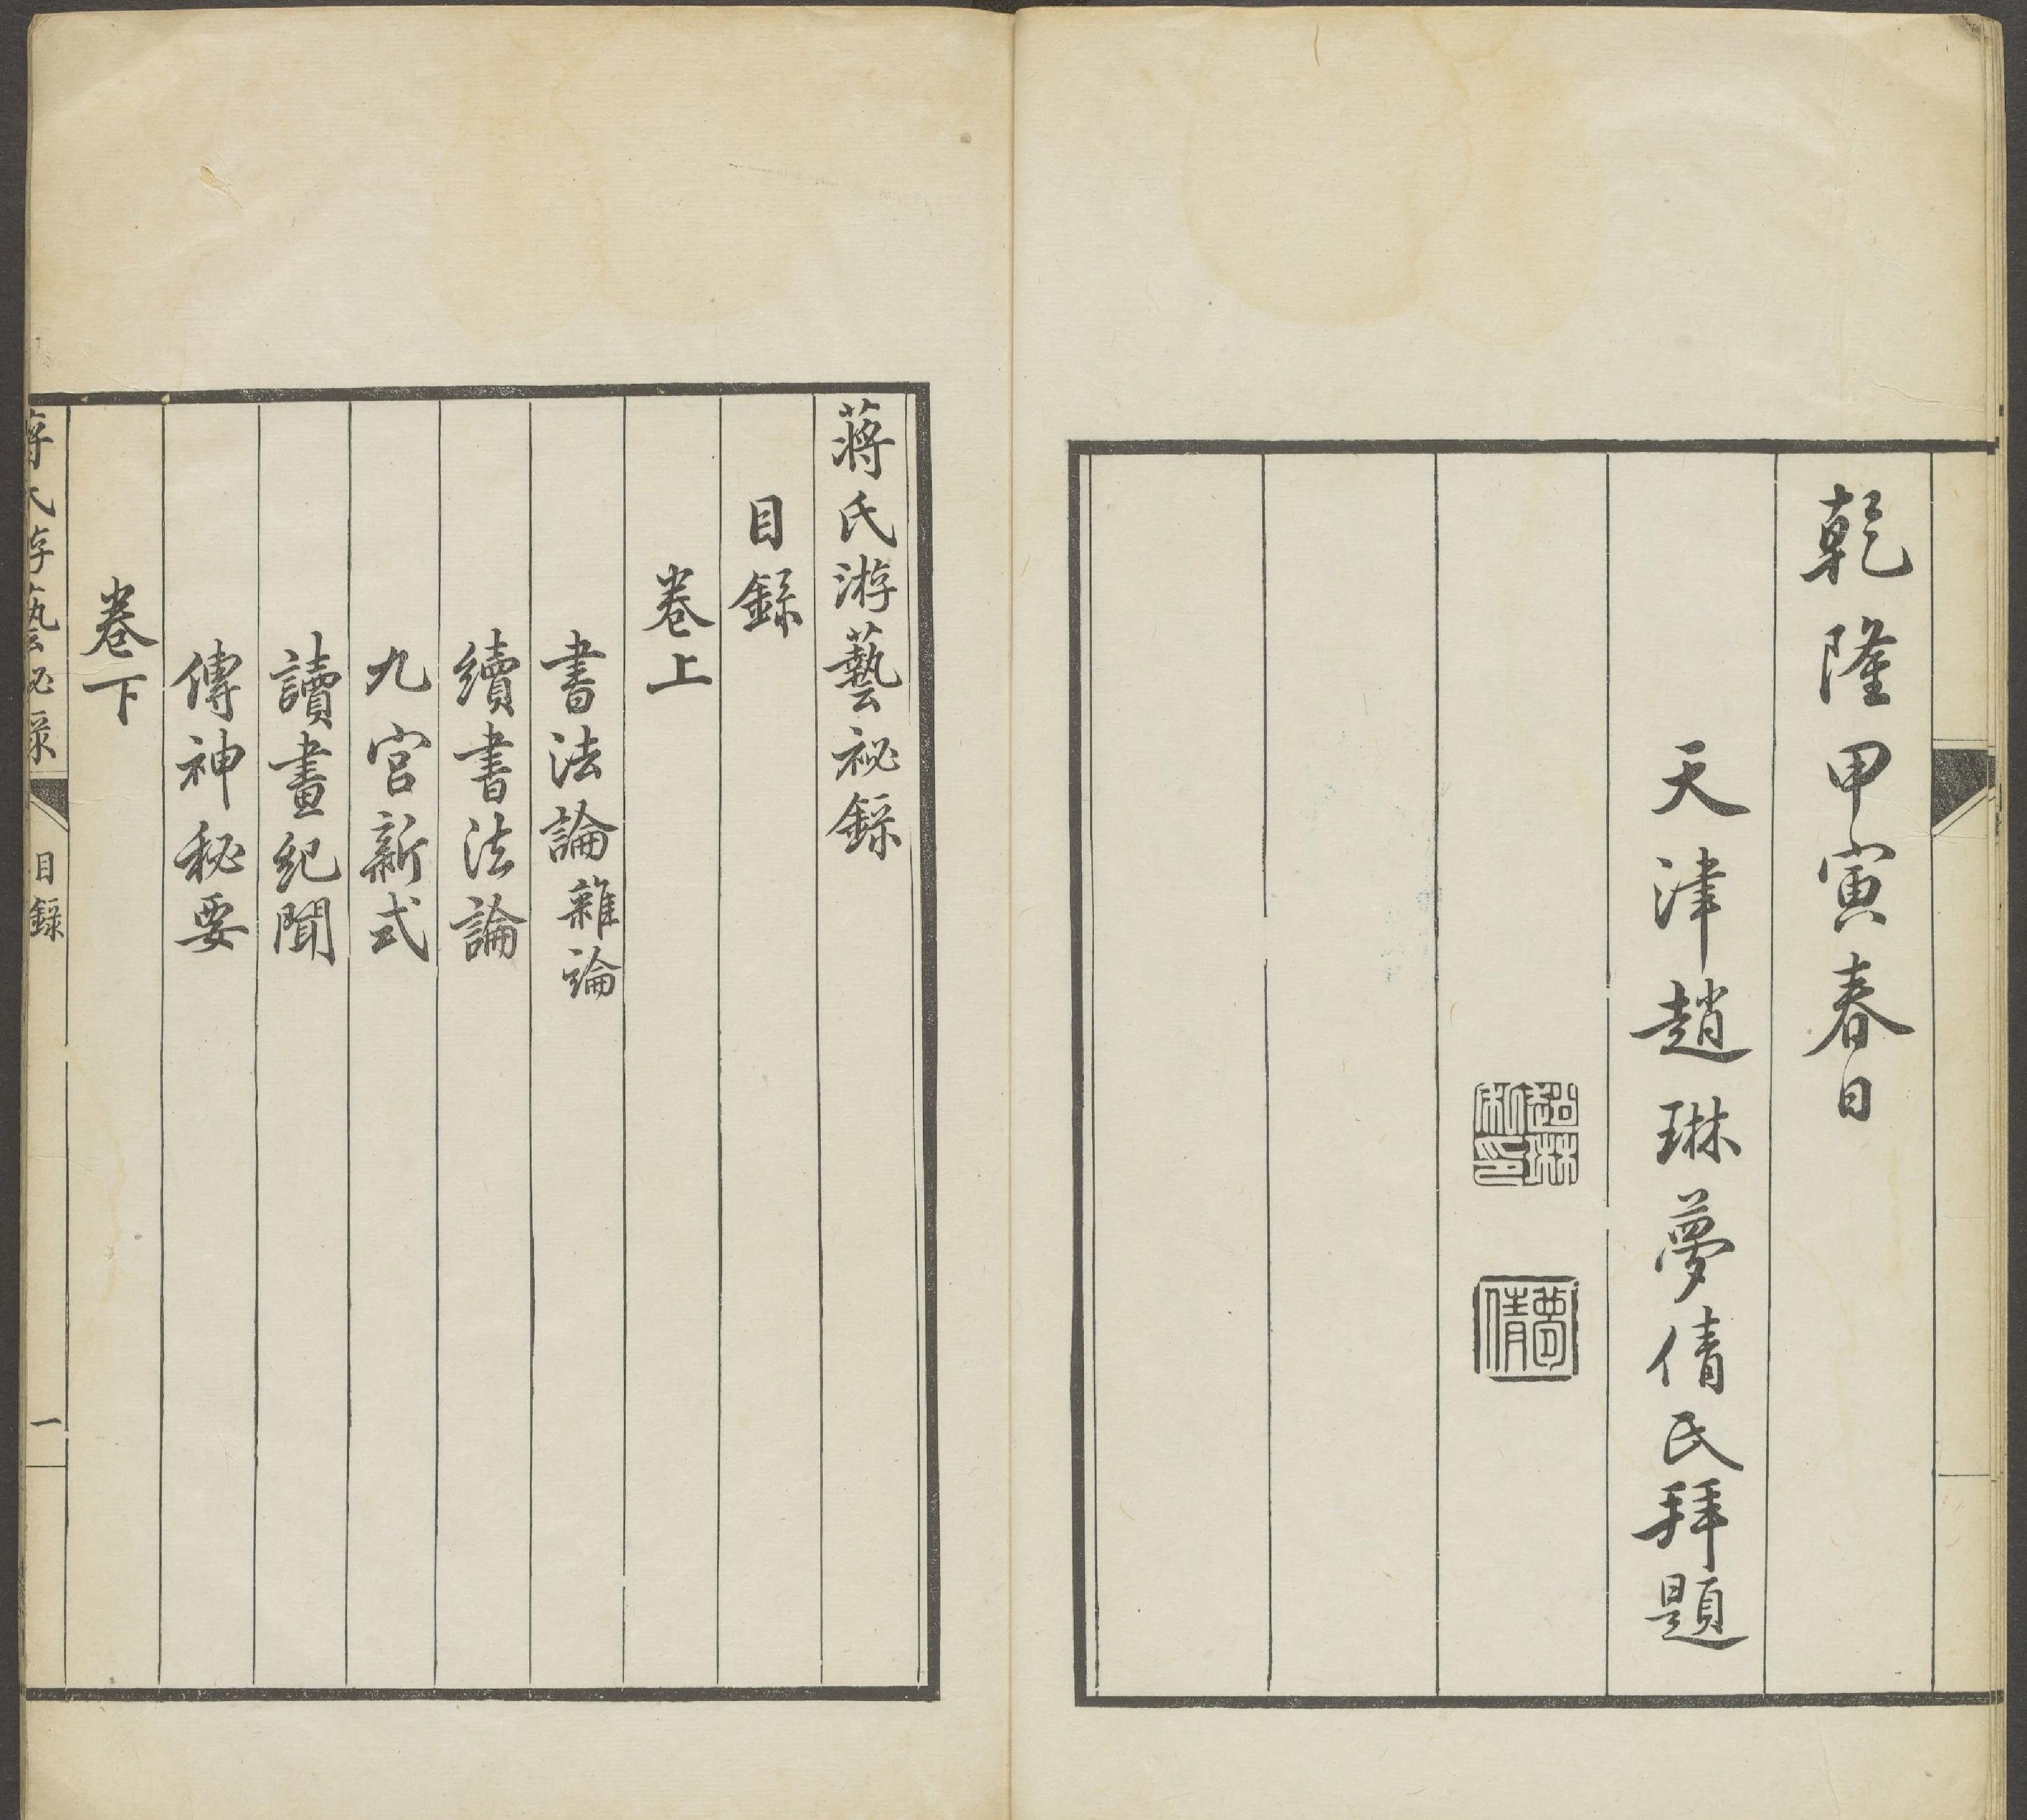 乾隆甲寅春日
天津趙琳夢倩氏拜題
趙琳私印
夢倩
蔣氏游藝祕錄
目錄
卷上
書法論雜論
續書法論
九宮新式
讀畫紀聞
傳神秘要
卷下
蔣氏游藝祕錄 目錄 一